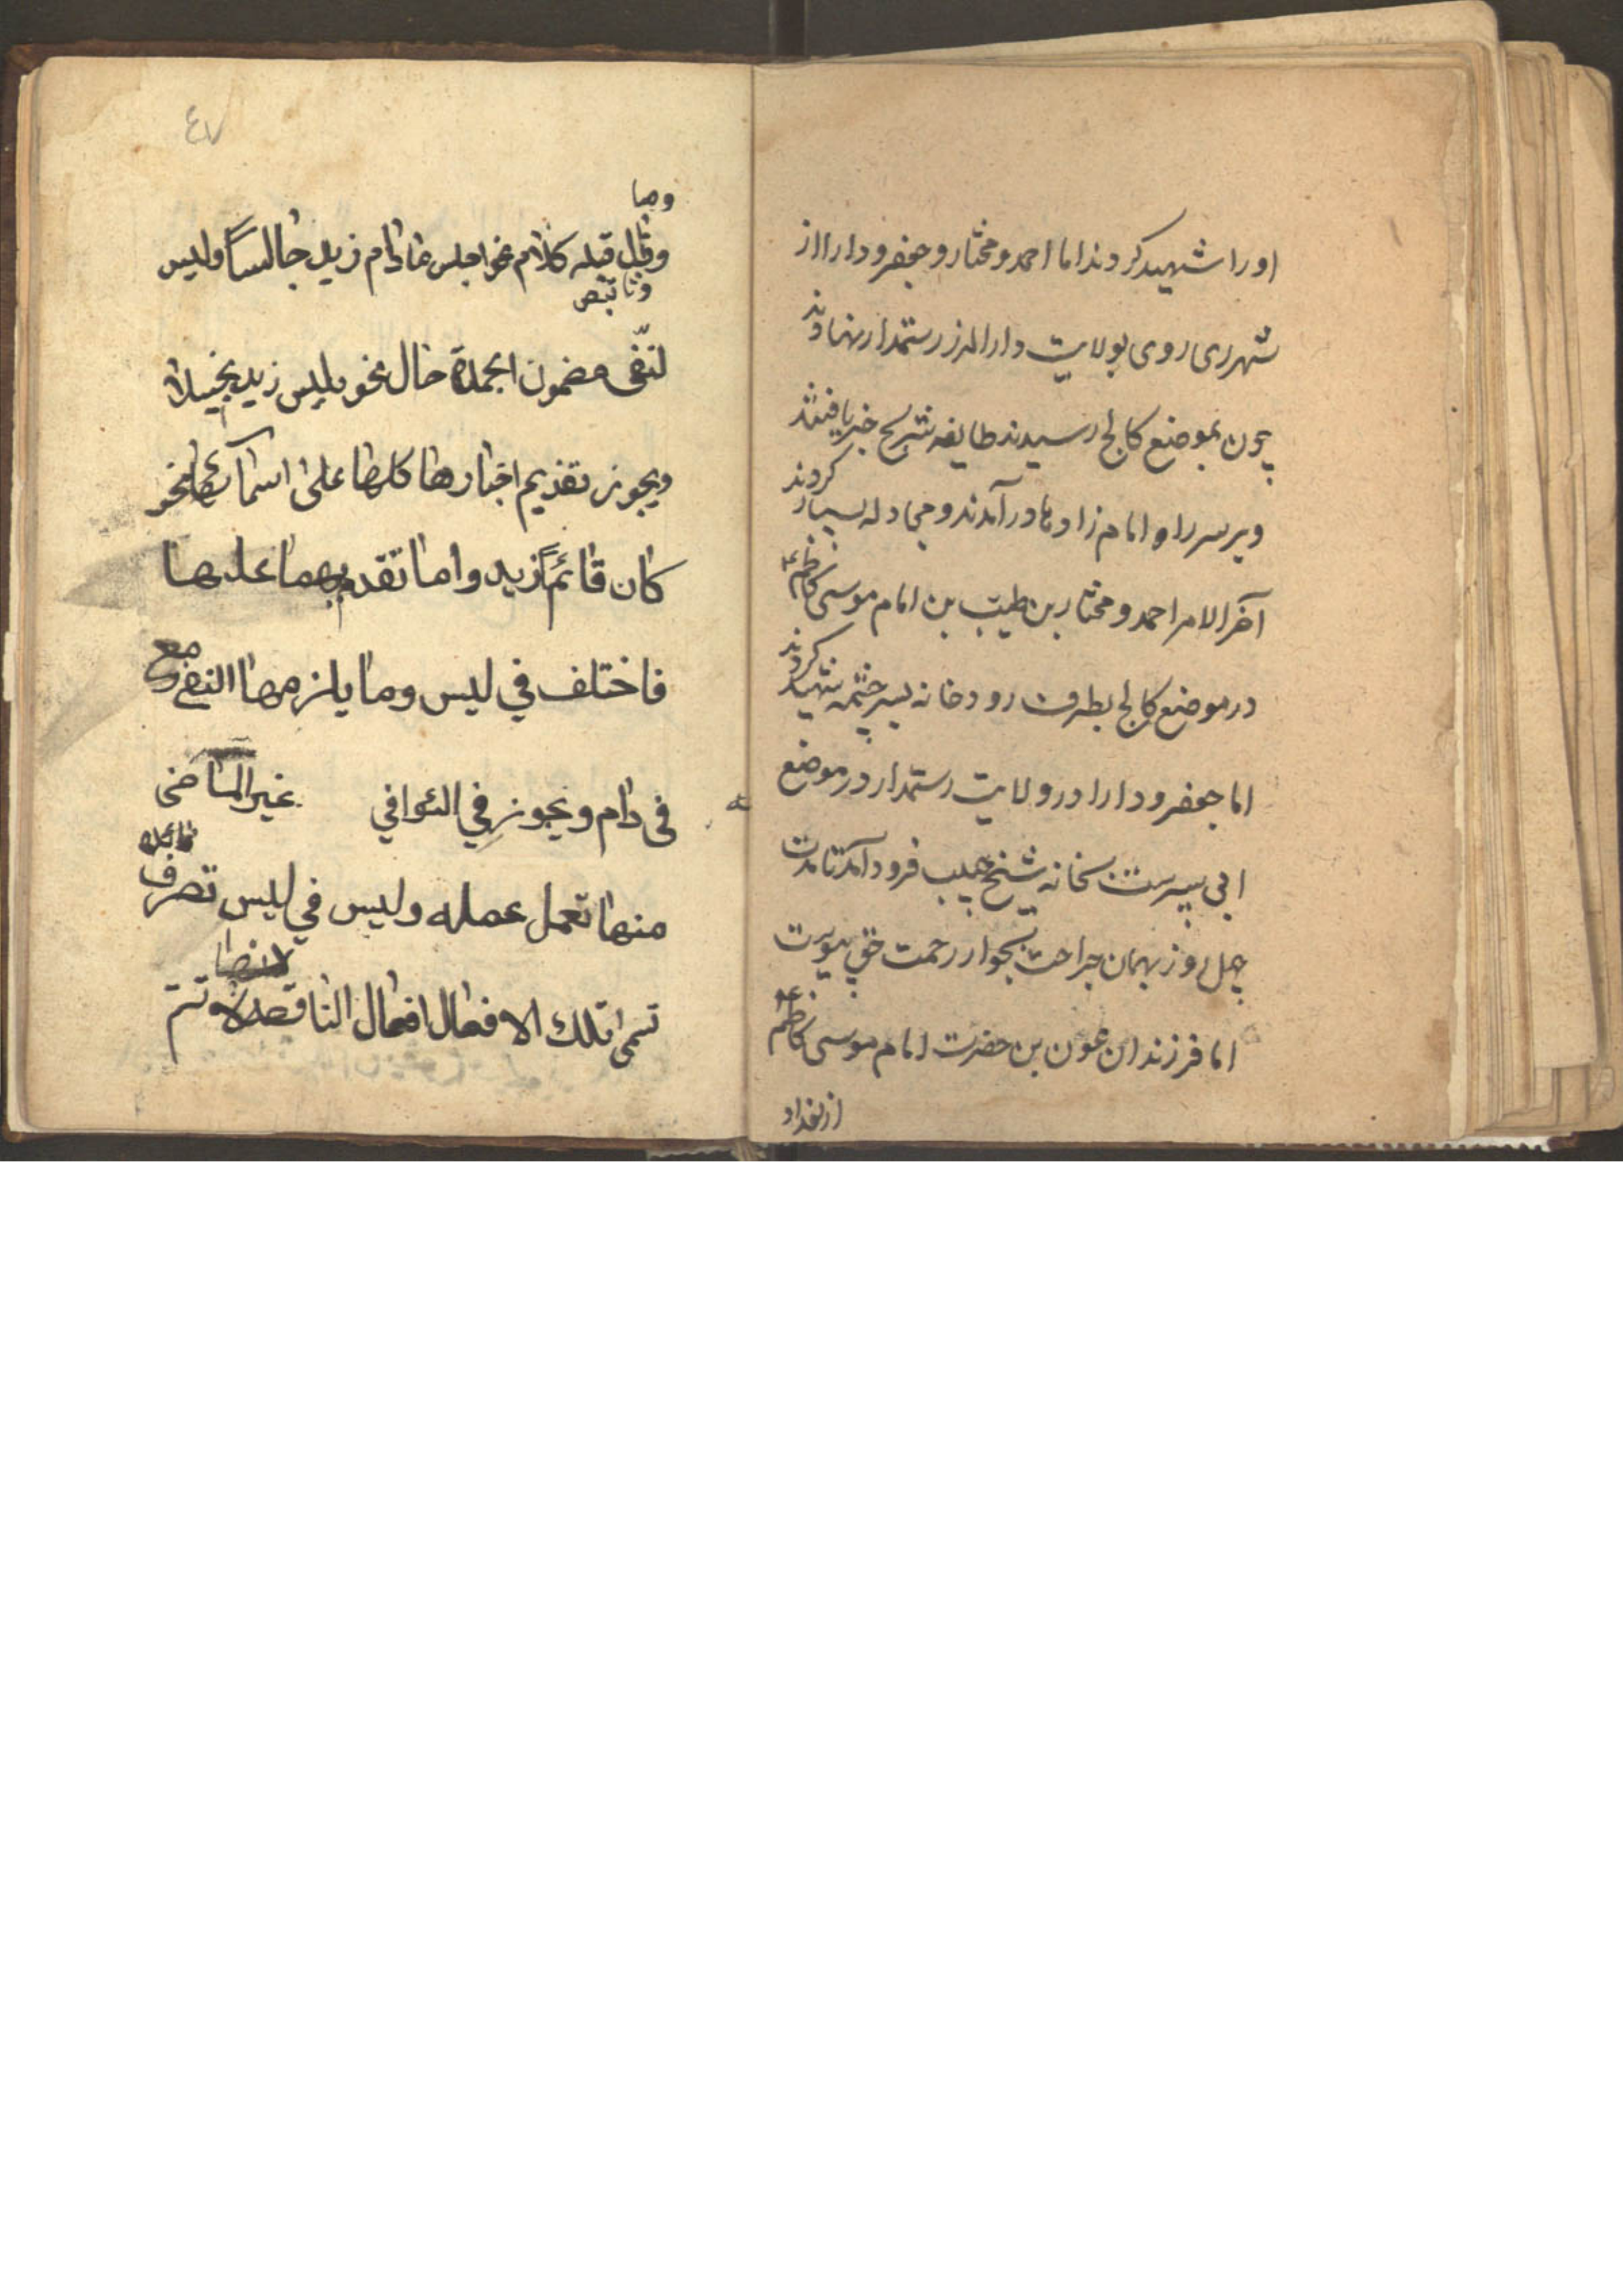 اورا شهید کردند اما احمد و مختار و جعفر و دارا از
شهر ری روی بولایت دارالمرز رستمدار نهادند
چون بموضع کالج رسیدند طایفه خبر یافتند
و بر سر راه امام زاد ها در آمدند و مجادله بسیار کردند
آخر الامر احمد و مختار بن طیب بن امام موسی کاظم ع
در موضع کالج بطرف رودخانه بسر چشمه شهید کردند
اما جعفر و دارا در ولایت رستمدار در موضع
بخانه شیخ فرود آمد تا مدت
چهل روز بهمان جراحت بجوار رحمت حق پیوست
اما فرزندان عون بن حضرت امام موسی کاظم ع
از بغداد
٤٧
وقبل قبله کلام نحو اجلس مادام زید جالسا ولیس
لنفی مضمون الجملة حال نحو لیس زید بخیلا
ویجوز تقدیم اخبارها کلها علی اسمائها نحو
کان قائما زید واما تقدیمها علیها
فاختلف في لیس وما یلزمها النفي مع
في دام ویجوز في البواقي غیر الماضی
منها تعمل عمله ولیس في لیس تصرف
تسمی تلك الافعال افعال الناقصة تتم